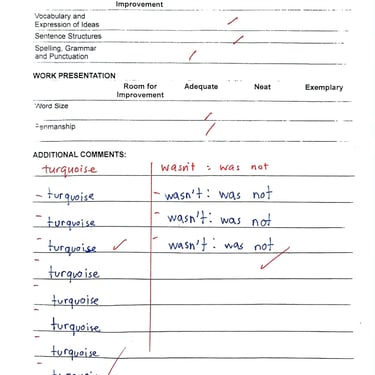 Improvement
Vocabulary and
Expression of Ideas
Sentence Structures
Spelling, Grammar
and Punctuation
WORK PRESENTATION
Room for Improvement Adequate Neat Exemplary
Word Size
Penmanship
ADDITIONAL COMMENTS:
turquoise wasn't : was not
- turquoise - wasn't : was not
- turquoise - wasn't : was not
- turquoise - wasn't : was not
- turquoise
- turquoise
- turquoise
- turquoise